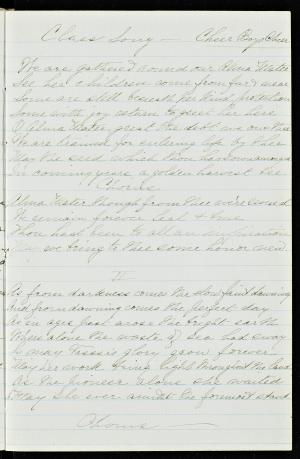 Class Song — Cheer Boys Cheer
We are gathered round our Alma Mater
See her children come from far & near
Some are still beneath her kind protection
Some with joy return to seek her here
O Alma Mater, great the debt we owe thee
We are trained for entering life by thee
May the seed which thou hast sown among us
In coming years a golden harvest be
Chorus
Alma Mater though from thee we're severed
We remain forever leal & true
Thou hast been to all an inspiration
we bring to thee some honor new.
II
As from darkness comes the slow faint dawning
And from dawning comes the perfect day
As in ages past arose the bright earth
Where alone the waste of sea had sway
So may Vassar's glory grow forever
May her work bring light throughout the land
As the pioneer alone she waited
May she ever amidst the foremost stand
Chorus —